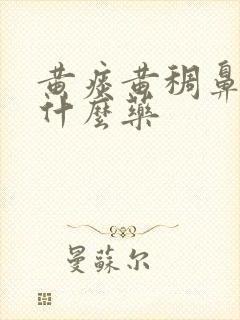 黄痰黄稠鼻
什麼藥
曼蘇尔